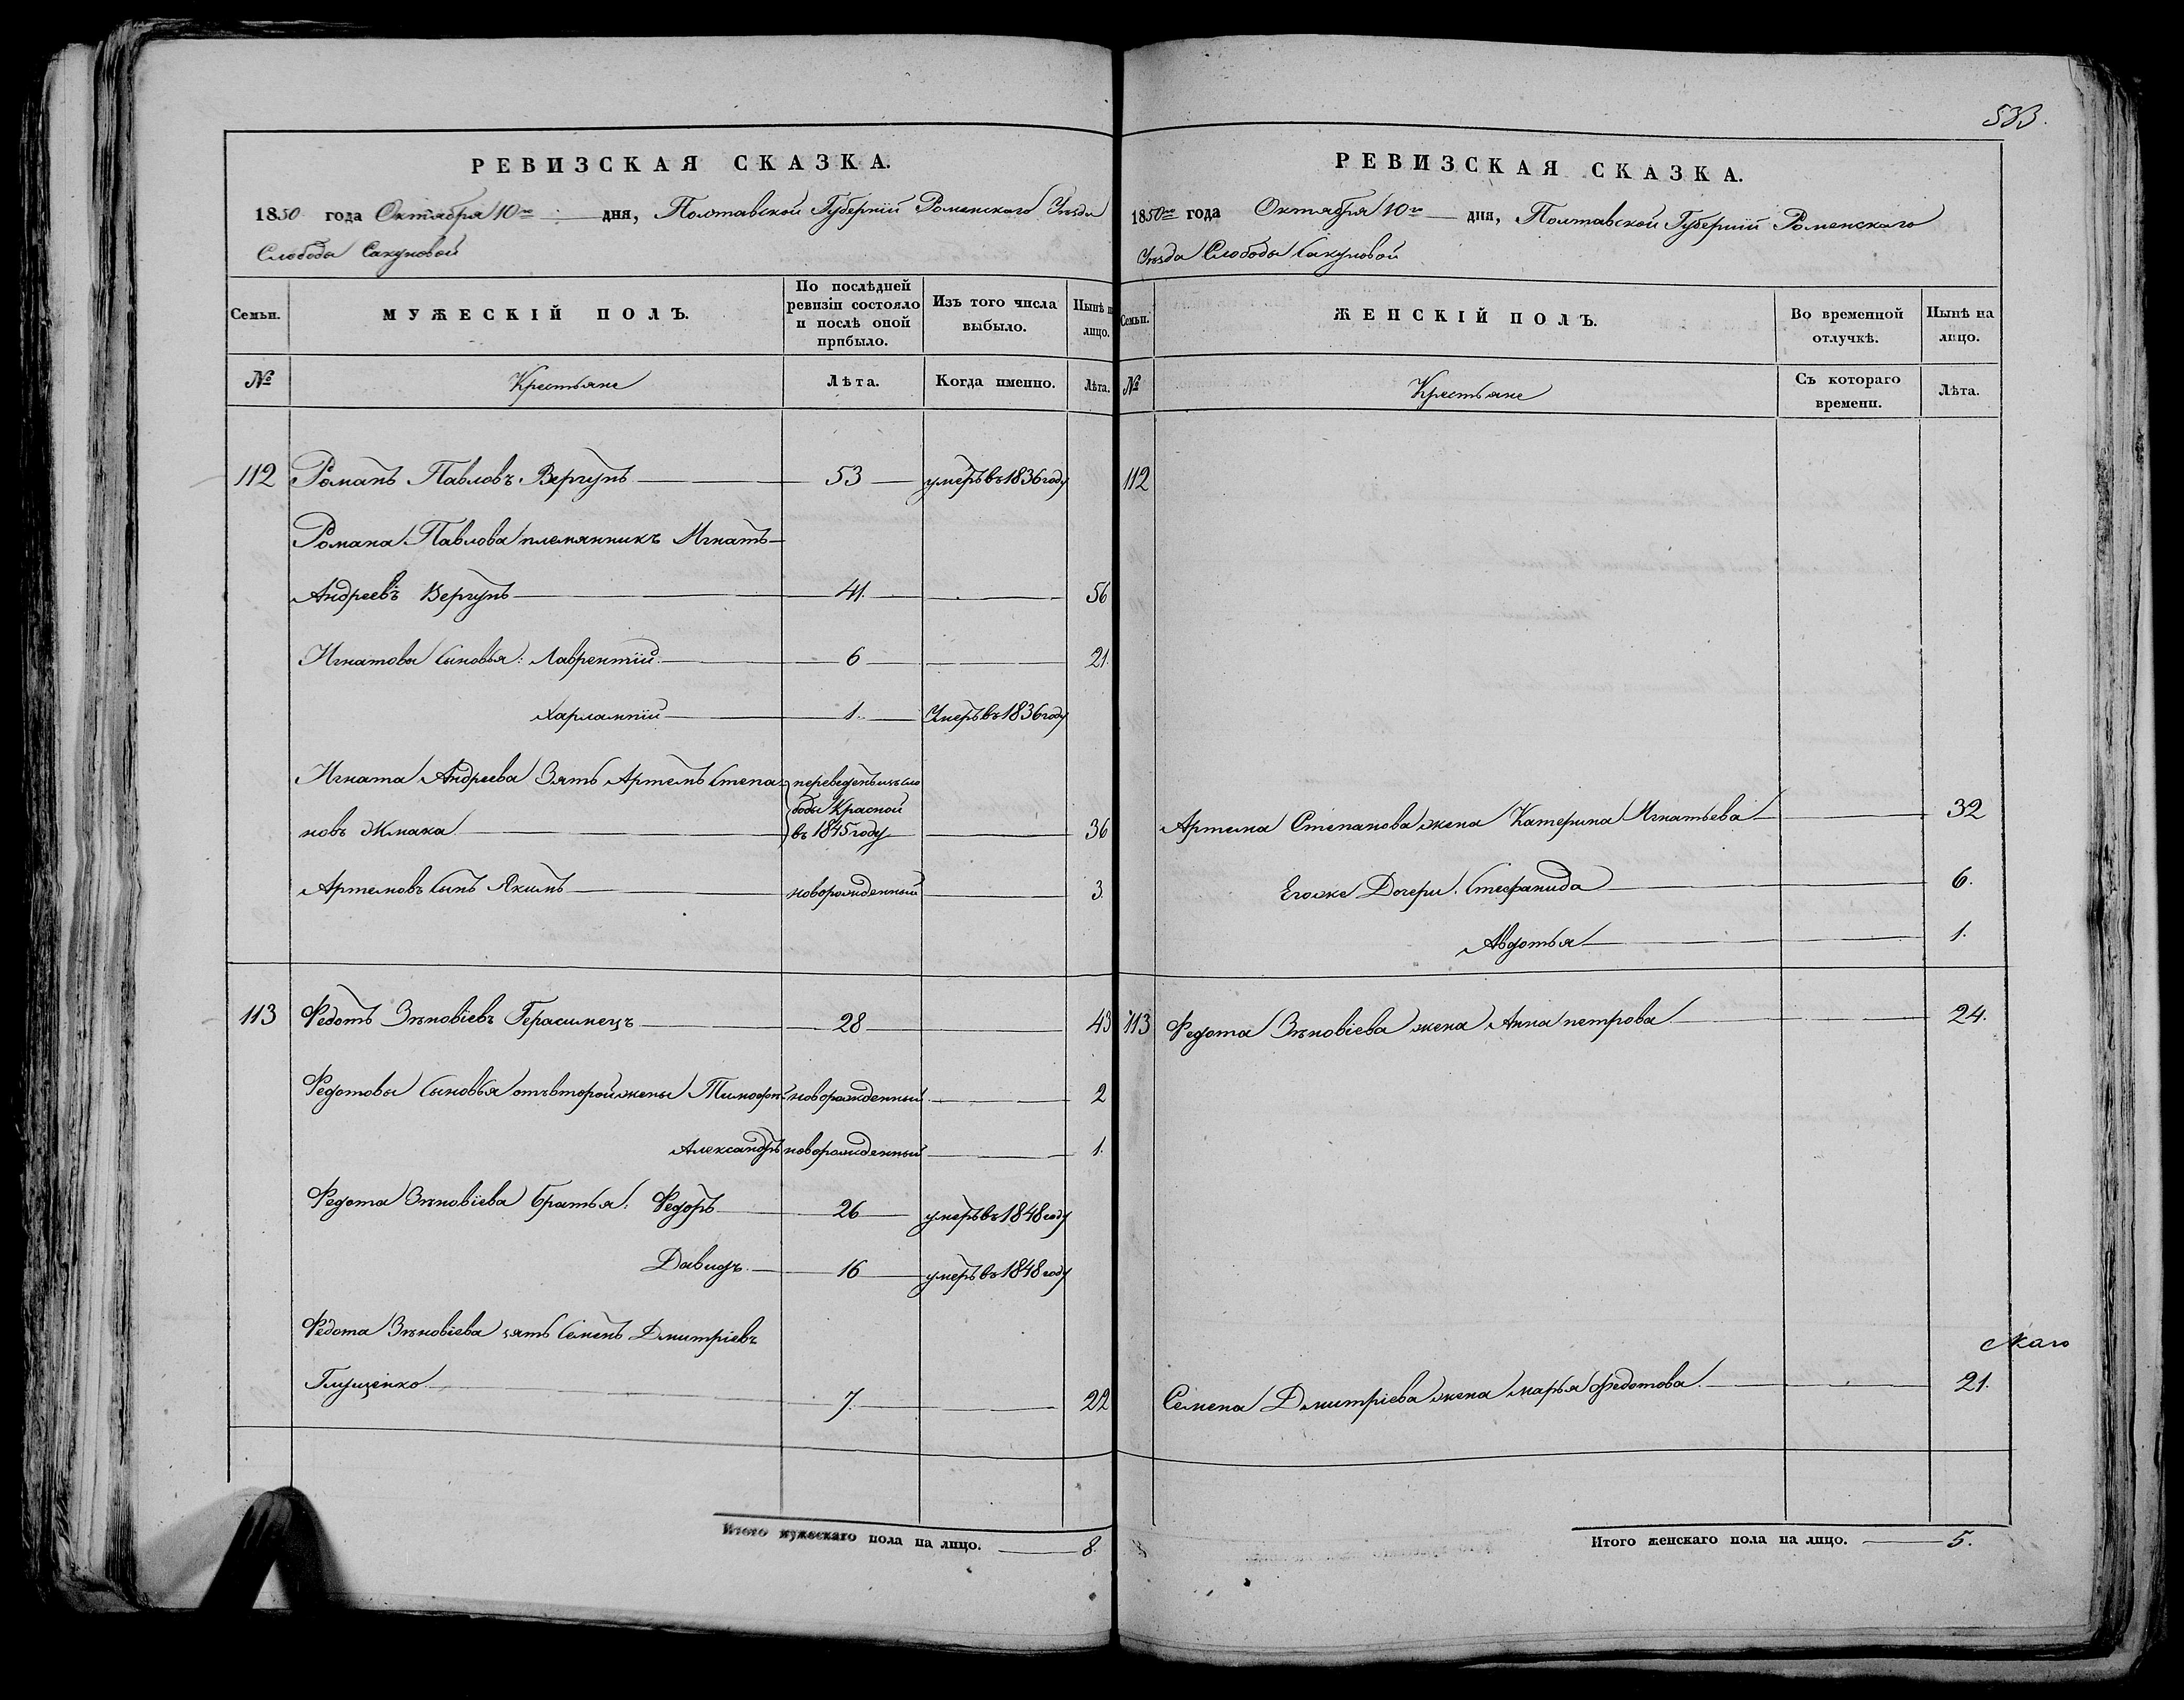 533.
РЕВИЗСКАЯ СКАЗКА.
1850 года Октября 10го дня, Полтавской Губерніи Роменскаго Уѣзда
Слободы Сакуновой
Семьи.
МУЖЕСКІЙ ПОЛЪ.
По послѣдней ревизіи состояло и послѣ оной прибыло.
Изъ того числа выбыло.
Нынѣ н лицо.
№
Крестьяне
Лѣта.
Когда именно.
Лѣта.
112 Романъ Павловъ Вергунъ 53 умеръ въ 1836 году
Романа Павлова племянникъ Игнатъ
Андреевъ Вергунъ 41. 56
Игнатовы Сыновья: Лаврентій 6 21.
Харлампій 1. Умеръ въ 1836 году
Игната Андреева Зять Артемъ Степа- переведенъ изъ сло
боды Красной
новъ Жмака въ 1845 году 36
Артемовъ Сынъ Якимъ новорожденный 3.
113 Федотъ Зѣновіевъ Герасимецъ 28 43
Федотовы Сыновья отъ второй жены Тимофѣй новорожденный 2
Александръ новорожденный 1.
Федота Зѣновіева братья: Федоръ 26 умеръ въ 1848 году
Давидъ 16 умеръ въ 1848 году
Федота Зѣновіева зять Семенъ Дмитріевъ
Глущенко 7. 22
Итого мужескаго пола на лицо. 8.
РЕВИЗСКАЯ СКАЗКА.
1850го года Октября 10го дня, Полтавской Губерніи Роменскаго
Уѣзда Слободы Сакуновой
Семьи.
ЖЕНСКІЙ ПОЛЪ.
Во временной отлучкѣ.
Нынѣ на лицо.
№
Крестьяне
Съ котораго времени.
Лѣта.
112
Артема Степанова жена Катерина Игнатьева 32
Егоже Дочери: Стефанида 6.
Авдотья 1.
113 Федота Зѣновіева жена Анна петрова 24.
Семена Дмитріева жена марья федотова. 21.
Итого женскаго пола на лицо. 5.